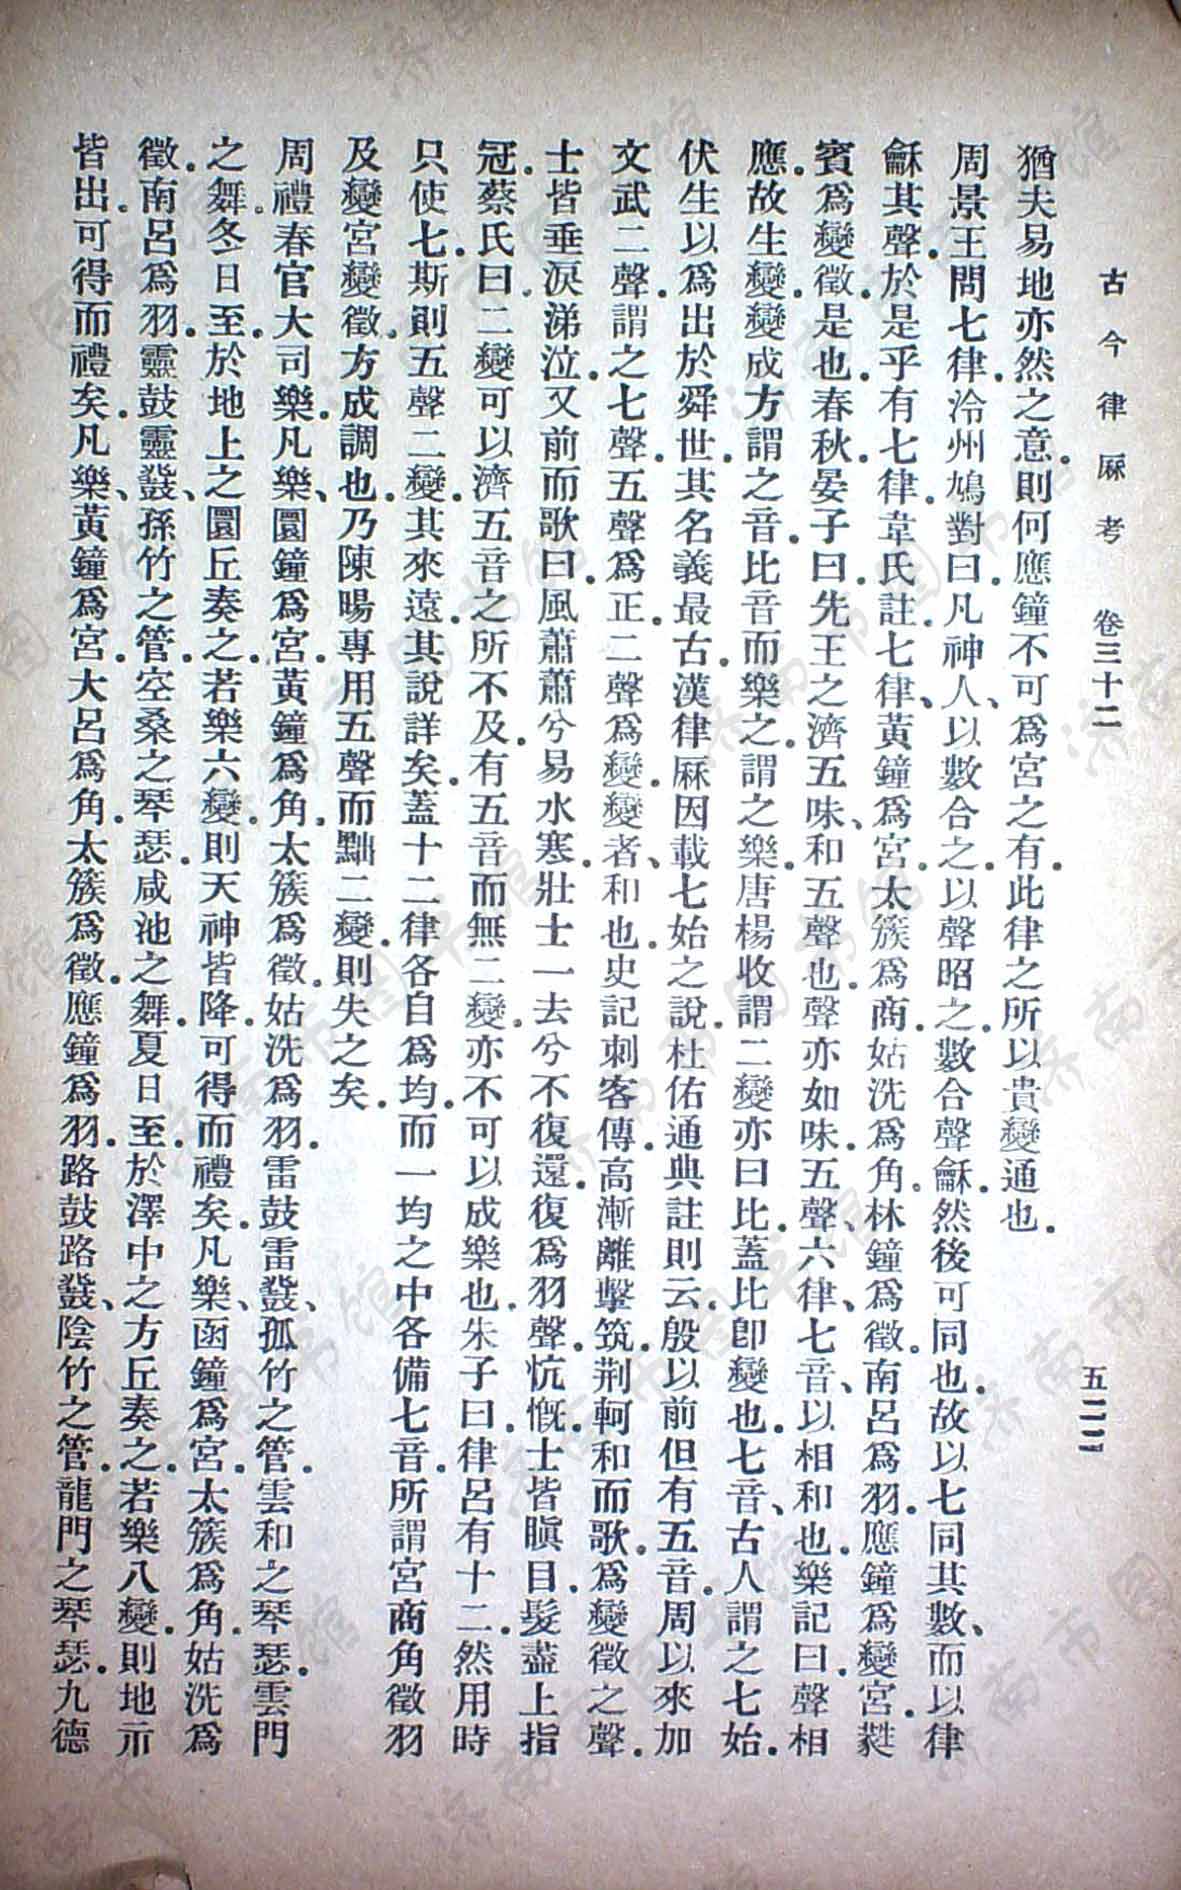 古今律厤考 卷三十二 五二二
猶夫易地亦然之意.則何應鐘不可爲宮之有.此律之所以貴變通也.
周景王問七律.泠州鳩對曰.凡神人、以數合之.以聲昭之.數合聲龢.然後可同也.故以七同其數、而以律
龢其聲.於是乎有七律.韋氏註.七律、黃鐘爲宮.太簇爲商.姑洗爲角.林鐘爲徵.南呂爲羽.應鐘爲變宮.蕤
賓爲變徵.是也.春秋.晏子曰.先王之濟五味、和五聲也.聲亦如味.五聲、六律、七音、以相和也.樂記曰.聲相
應.故生變.變成方.謂之音.比音而樂之.謂之樂.唐楊收謂二變亦曰比.蓋比卽變也.七音、古人謂之七始.
伏生以爲出於舜世.其名義最古.漢律厤因載七始之說.杜佑通典註則云.殷以前但有五音.周以來加
文武二聲.謂之七聲.五聲爲正.二聲爲變.變者、和也.史記刺客傳.高漸離擊筑.荆軻和而歌.爲變徵之聲.
士皆垂淚涕泣.又前而歌曰.風蕭蕭兮易水寒.壯士一去兮不復還.復爲羽聲.忼慨.士皆瞋目.髮盡上指
冠.蔡氏曰.二變可以濟五音之所不及.有五音而無二變.亦不可以成樂也.朱子曰.律呂有十二.然用時
只使七.斯則五聲二變.其來遠.其說詳矣.蓋十二律各自爲均.而一均之中各備七音.所謂宮商角徵羽
及變宮變徵.方成調也.乃陳暘專用五聲而黜二變.則失之矣.
周禮春官大司樂.凡樂、圜鐘爲宮.黃鐘爲角.太簇爲徵.姑洗爲羽.雷鼓雷鼗、孤竹之管.雲和之琴瑟.雲門
之舞.冬日至.於地上之圜丘奏之.若樂六變.則天神皆降.可得而禮矣.凡樂、函鐘爲宮.太簇爲角.姑洗爲
徵.南呂爲羽.靈鼓靈鼗、孫竹之管.空桑之琴瑟.咸池之舞.夏日至.於澤中之方丘奏之.若樂八變.則地示
皆出.可得而禮矣.凡樂、黃鐘爲宮.大呂爲角.太簇爲徵.應鐘爲羽.路鼓路鼗、陰竹之管.龍門之琴瑟.九德